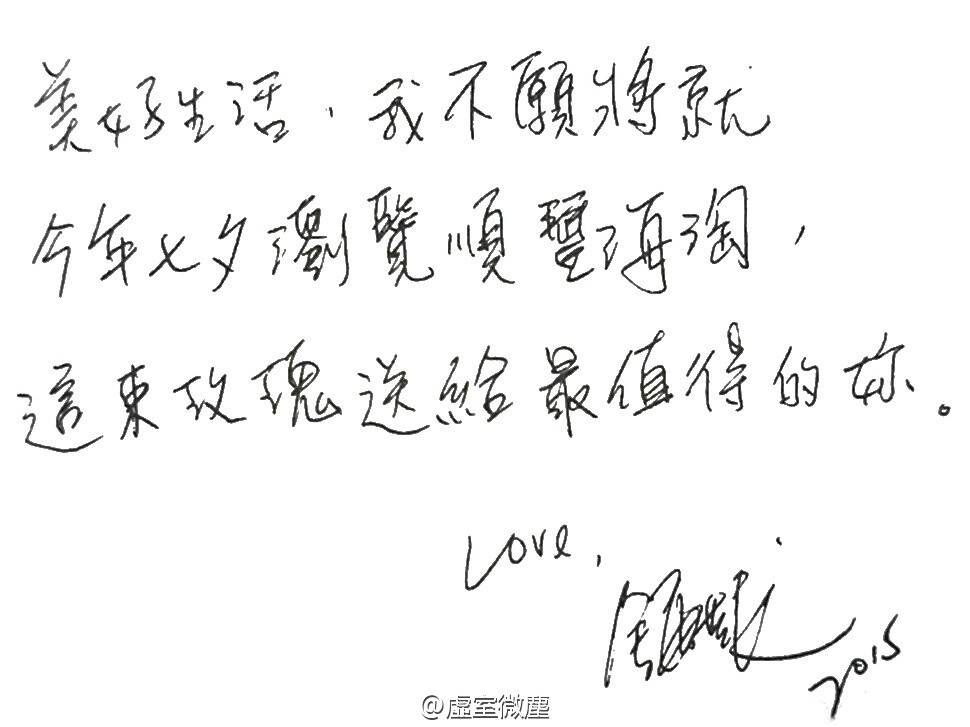 美好生活，我不願將就
今年七夕瀏覽順豐海淘，
這束玫瑰送給最值得的妳。
Love,
2015
@虛室微塵